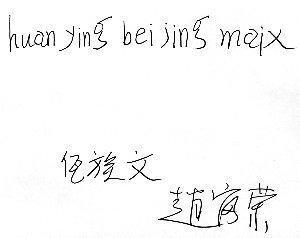 huan ying bei jing maix
伍旋文
趙富荣